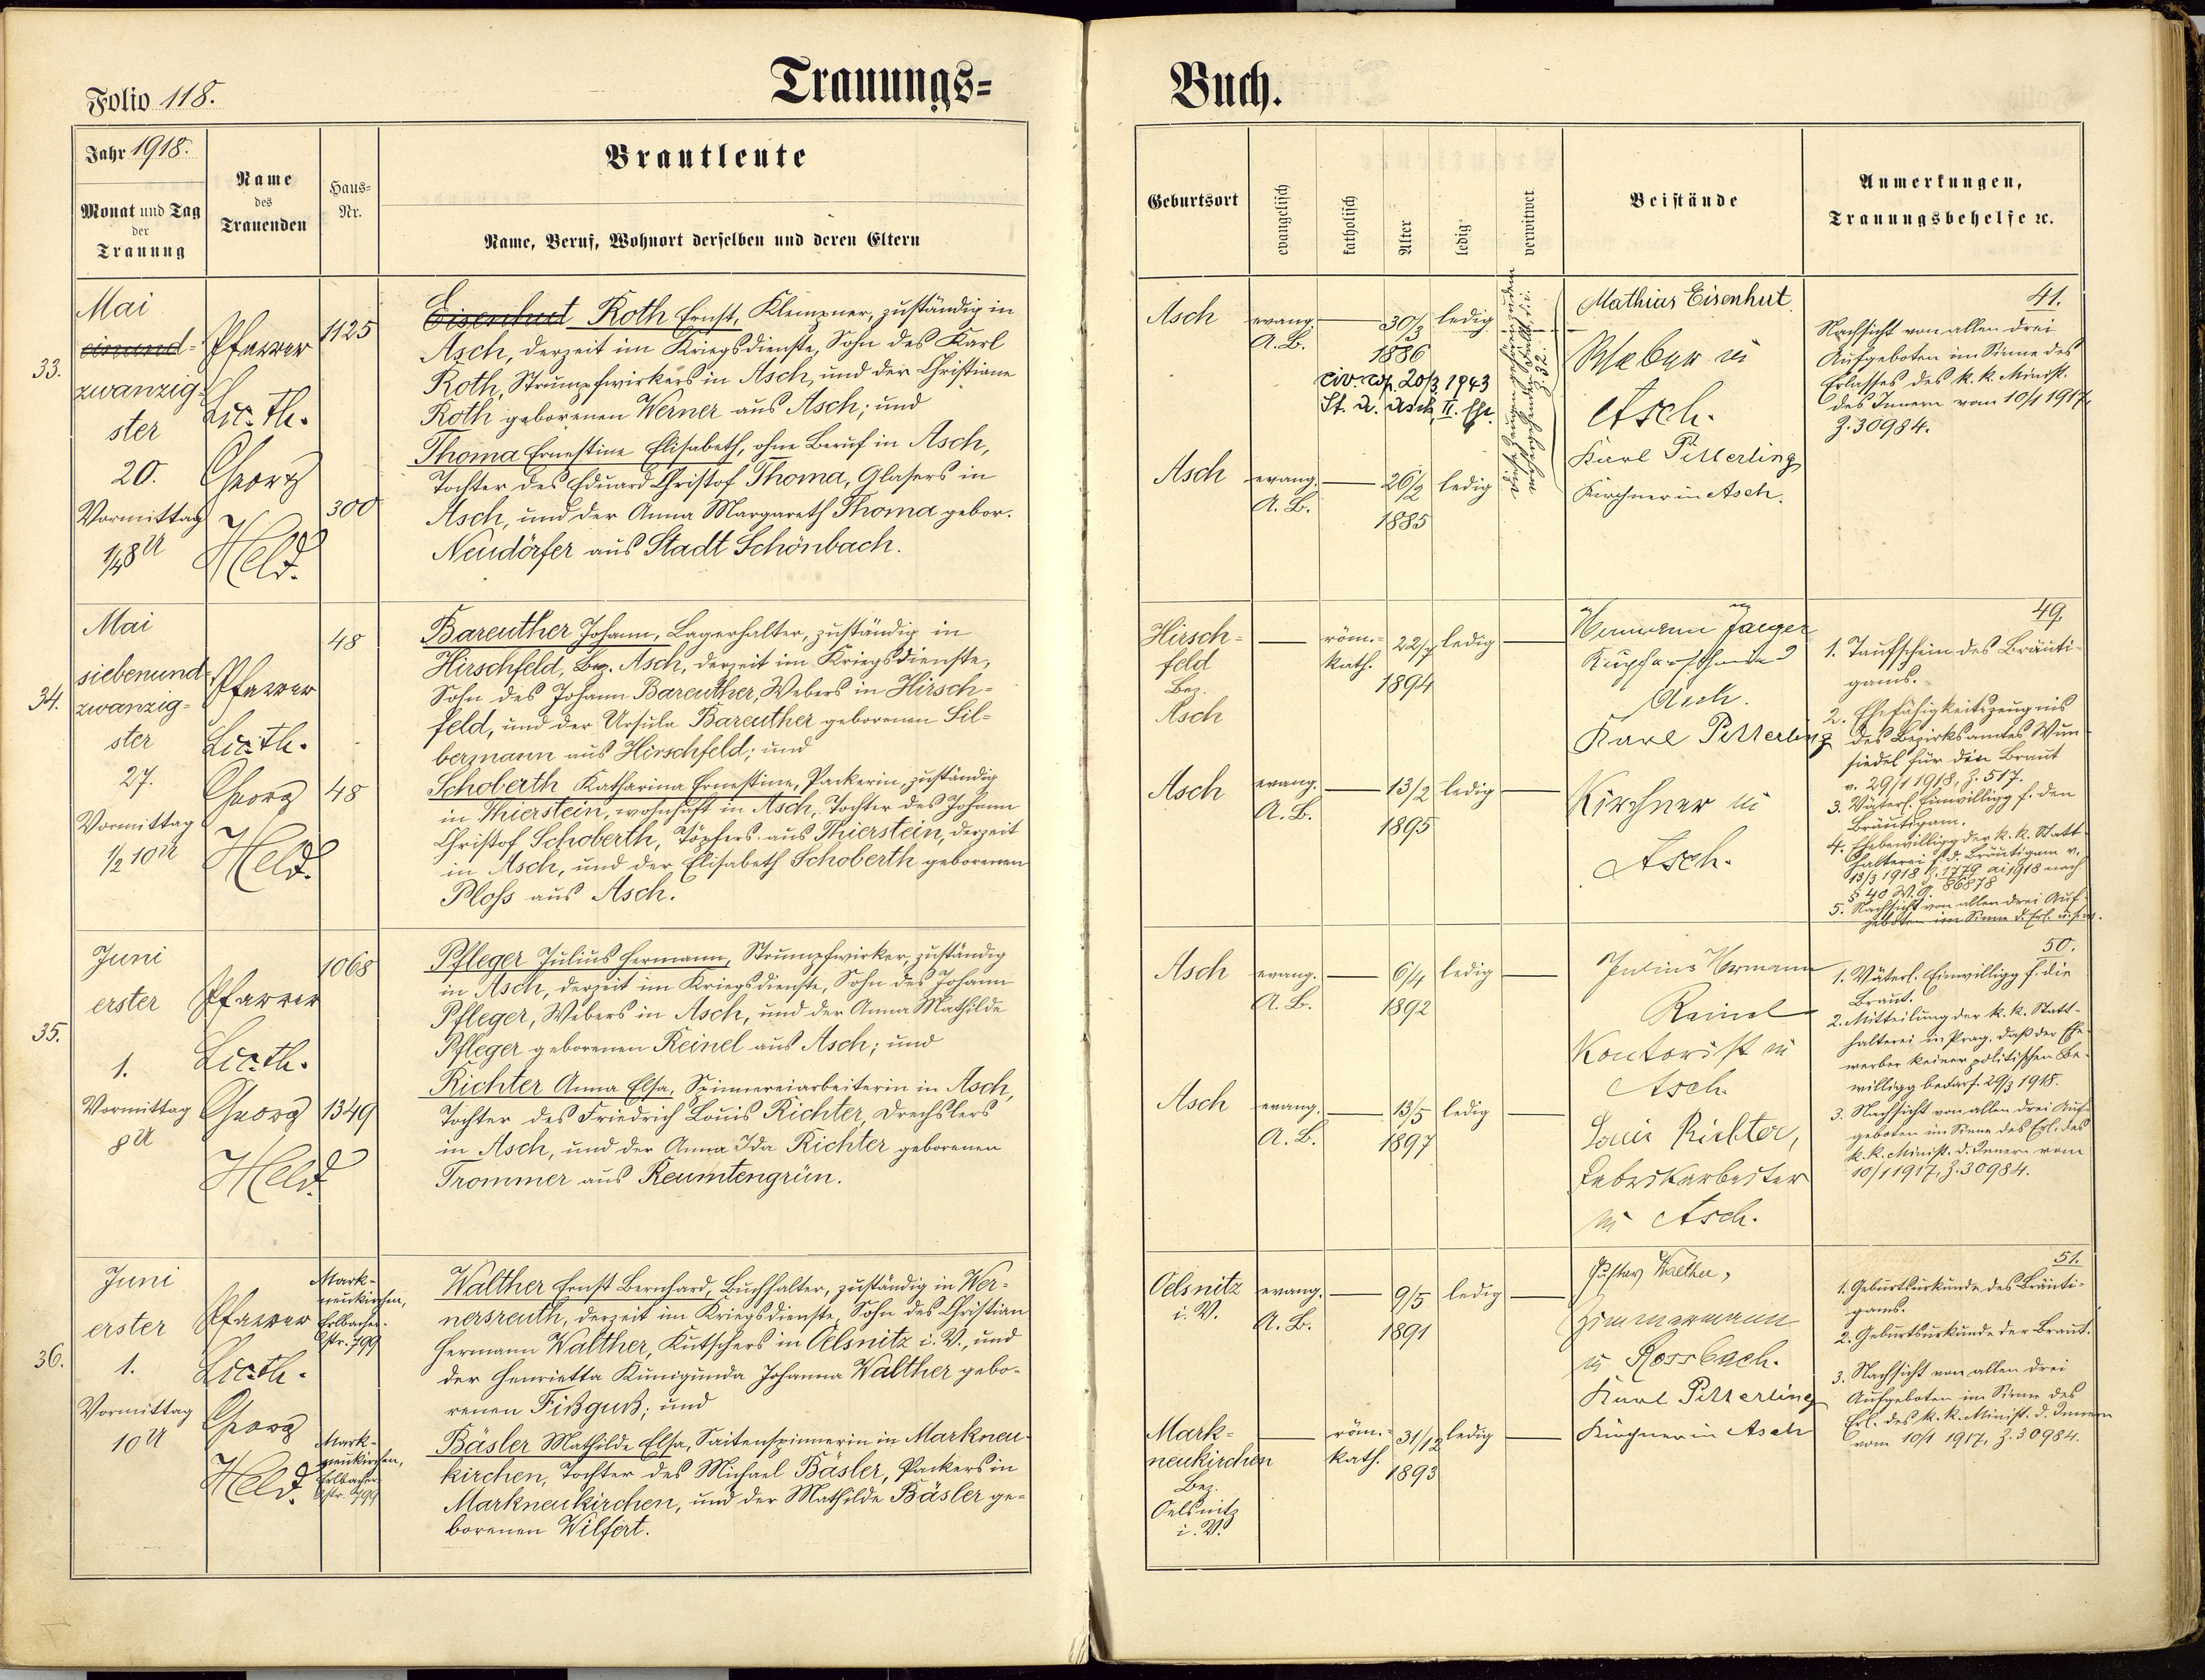 Folio 118.
Trauungs=
Jahr 1918.
Monat und Tag
der
Trauung
Name
des
Trauenden
Haus=
Nr.
Brautleute
Name, Beruf, Wohnort derselben und deren Eltern
33.
Mai
einund-
zwanzig-
ster
20.
Vormittag
1/48 U
Pfarrer
Lic. Th.
Georg
Held.
1125
300
Eisenhut Roth Ernst, Klempner, zuständig in
Asch, derzeit im Kriegsdienste, Sohn des Karl
Roth, Strumpfwirkers in Asch, und der Christiane
Roth geborenen Werner aus Asch; und
Thoma Ernestine Elisabeth, ohne Beruf in Asch,
Tochter des Eduard Christof Thoma, Glasers in
Asch, und der Anna Margareth Thoma gebor.
Neudörfer aus Stadt Schönbach.
34.
Mai
siebenund-
zwanzig-
ster
27.
Vormittag
1/2 10 U
Pfarrer
Lic. Th.
Georg
Held.
48
48
Bareuther Johann, Lagerhalter, zuständig in
Hirschfeld, Bez. Asch, derzeit im Kriegsdienste,
Sohn des Johann Bareuther, Webers in Hirsch-
feld, und der Ursula Bareuther geborenen Sil-
bermann aus Hirschfeld; und
Schoberth Katharina Ernestine, Packerin, zuständig
in Thierstein, wohnhaft in Asch, Tochter des Johann
Christof Schoberth, Töpfers aus Thierstein, derzeit
in Asch, und der Elisabeth Schoberth geborenen
Ploss aus Asch.
35.
Juni
erster
1.
Vormittag
8 U
Pfarrer
Lic. Th.
Georg
Held.
1068
1349
Pfleger Julius Hermann, Strumpfwirker, zuständig
in Asch, derzeit im Kriegsdienste, Sohn des Johann
Pfleger, Webers in Asch, und der Anna Mathilde
Pfleger geborenen Reinel aus Asch; und
Richter Anna Elsa, Spinnereiarbeiterin in Asch,
Tochter des Friedrich Louis Richter, Drechslers
in Asch, und der Anna Ida Richter geborenen
Trommer aus Reumtengrün.
36.
Juni
erster
1.
Vormittag
10 U
Pfarrer
Lic. Th.
Georg
Held.
Mark-
neukirchen,
Erlbacher-
str. 799
Mark-
neukirchen,
Erlbacher
str. 799
Walther Ernst Bernhard, Buchhalter, zuständig in Wer-
nersreuth, derzeit im Kriegsdienste, Sohn des Christian
Hermann Walther, Kutschers in Oelsnitz i. V., und
der Henrietta Kunigunda Johanna Walther gebo-
renen Fißguß; und
Bäsler Mathilde Elsa, Saitenspinnerin in Markneu-
kirchen, Tochter des Michael Bäsler, Packers in
Markneukirchen, und der Mathilde Bäsler ge-
borenen Wilfert.
Buch.
Geburtsort
evangelisch
katholisch
Alter
ledig
verwitwet
Beistände
Anmerkungen,
Trauungsbehelfe ꝛc.
Asch
evang.
A. B.
30/3
1886
ledig
civ. cop. 20/3 1943
St. A. Asch, II. Ehe.
Asch
evang.
A. B.
26/2
1885
ledig
Mathias Eisenhut
Weber in
Asch.
Karl Pitterling
Kirchner in Asch.
41.
Nachsicht von allen drei
Aufgeboten im Sinne des
Erlasses des k. k. Minist.
des Innern vom 10/1 1917,
Z. 30984.
Hirsch-
feld
Bez.
Asch
röm.-
kath.
22/7
1894
ledig
Asch
evang.
A. B.
13/2
1895
ledig
Hermann Jaeger
Kupferschmied
Asch.
Karl Pitterling
Kirchner in
Asch.
49.
1. Taufschein des Bräuti-
gams.
2. Ehefähigkeitszeugnis
des Bezirksamtes Wun-
siedel für die Braut
v. 29/1 1918, Z. 517.
3. Väterl. Einwilligg f. den
Bräutigam.
4. Ehebewilligg der k. k. Statt-
halterei f. d. Bräutigam v.
13/3 1918 Z. 1779 ai 1918 nach
§ 40 W. G. 86878
5. Nachsicht von allen drei Auf-
geboten im Sinne d. Erl. u. s. w.
Asch
evang.
A. B.
6/4
1892
ledig
Asch
evang.
A. B.
13/5
1897
ledig
Julius Hermann
Reinel
Kontorist in
Asch.
Louis Richter,
Fabrikarbeiter
in Asch.
50.
1. Väterl. Einwilligg f. die
Braut.
2. Mitteilung der k. k. Statt-
halterei in Prag, daß der Ehe-
werber keiner politischen Be-
willigg bedarf. 29/3 1918.
3. Nachsicht von allen drei Auf-
geboten im Sinne des Erl. des
k. k. Minist. d. Innern vom
10/1 1917, Z. 30984.
Oelsnitz
i. V.
evang.
A. B.
9/5
1891
ledig
Mark-
neukirchen
Bez.
Oelsnitz
i. V.
röm.-
kath.
31/12
1893
ledig
Gustav Walther,
Zimmermann
in Rossbach.
Karl Pitterling
Kirchner in Asch
51.
1. Geburtsurkunde des Bräuti-
gams.
2. Geburtsurkunde der Braut.
3. Nachsicht von allen drei
Aufgeboten im Sinne des
Erl. des k. k. Minist. d. Innern
vom 10/1 1917, Z. 30984.